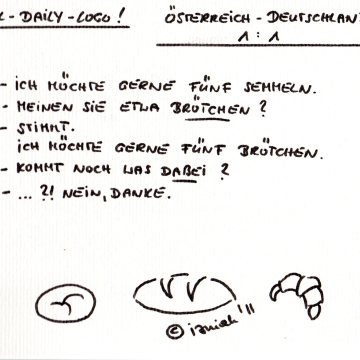 L-DAILY-LOGO!
ÖSTERREICH - DEUTSCHLAN
1 : 1
- ICH MÖCHTE GERNE FÜNF SEMMELN.
- MEINEN SIE ETWA BRÖTCHEN ?
- STIMMT.
ICH MÖCHTE GERNE FÜNF BRÖTCHEN.
- KOMMT NOCH WAS DABEI ?
- ... ?! NEIN, DANKE.